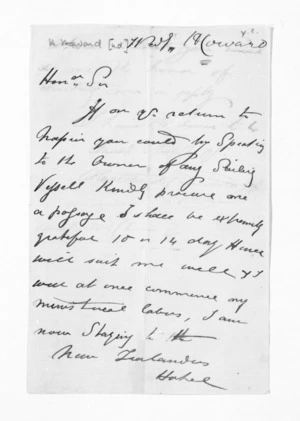 H Howard [nd] Wedy Howard
Honor Sir
If on yr return to
Napier you could by Speaking
to the Owner of any Sailing
Vessell Kindly procure me
a passage I shall be extremely
grateful 10 or 14 day Hence
would suit me well as I
want at once commence my
ministereal labors, I am
now Staying to the
New Zealanders
Hotel